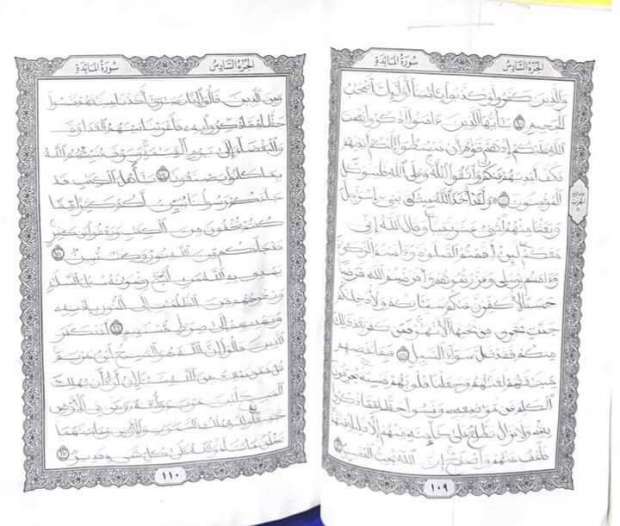 الجزء السادس
سورة المائدة
والذين كفروا وكذبوا بايتنا اوليك اصحب
الجحيم ١٠ يايها الذين ءامنوا اذكروا نعمت
الله عليكم اذ هم قوم ان يبسطوا اليكم ايديهم
فكف ايديهم عنكم واتقوا الله وعلى الله فليتوكل
المومنون ١١ ولقد اخذ الله ميثق بني اسرءيل
وبعثنا منهم اثني عشر نقيبا وقال الله اني
معكم لئن اقمتم الصلوة وءاتيتم الزكوة
وءامنتم برسلي وعزرتموهم واقرضتم الله قرضا
حسنا لاكفرن عنكم سياتكم ولادخلنكم
جنت تجري من تحتها الانهر فمن كفر بعد ذلك
منكم فقد ضل سواء السبيل ١٢ فبما نقضهم
ميثقهم لعنهم وجعلنا قلوبهم قسية يحرفون
الكلم عن مواضعه ونسوا حظا مما ذكروا به
ولا تزال تطلع على خاينة منهم الا قليلا منهم
فاعف عنهم واصفح ان الله يحب المحسنين ١٣
١٠٩
الجزء السادس
سورة المائدة
ومن الذين قالوا انا نصرى اخذنا ميثقهم فنسوا
حظا مما ذكروا به فاغرينا بينهم العداوة
والبغضاء الى يوم القيمة وسوف ينبئهم الله
بما كانوا يصنعون ١٤ ياهل الكتب قد
جاءكم رسولنا يبين لكم كثيرا مما
كنتم تخفون من الكتب ويعفوا عن كثير
قد جاءكم من الله نور وكتب مبين ١٥
يهدي به الله من اتبع رضونه سبل السلم
ويخرجهم من الظلمت الى النور باذنه
ويهديهم الى صرط مستقيم ١٦ لقد كفر
الذين قالوا ان الله هو المسيح ابن مريم
قل فمن يملك من الله شيئا ان اراد ان يهلك
المسيح ابن مريم وامه ومن في الارض
جميعا ولله ملك السموت والارض وما بينهما
يخلق ما يشاء والله على كل شيء قدير ١٧
١١٠